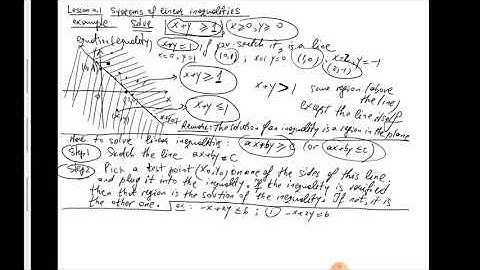 Lesson 4.1 Systems of linear inequalities
example solve x+y ≥ 1, x ≥ 0, y ≥ 0
equation(equality) x+y = 1, if you sketch it, is a line
x=0, y=1 (0,1); x=1 y=0 (1,0); x=2 y=-1 (2,-1)
x+y ≥ 1
x+y > 1 same region (above the line) except the line itself
x+y ≤ 1
x+y=1
Remark: The solution of an inequality is a region in the plane
How to solve linear inequalities: ax+by ≥ c (or ax+by ≤ c)
Step 1 Sketch the line ax+by = c
Step 2 Pick a test point (x₀,y₀) on one of the sides of this line
and plug it into the inequality. If the inequality is verified
then that region is the solution of the inequality. If not, it is
the other one. ex: -x+2y ≤ 6; ① -x+2y=6